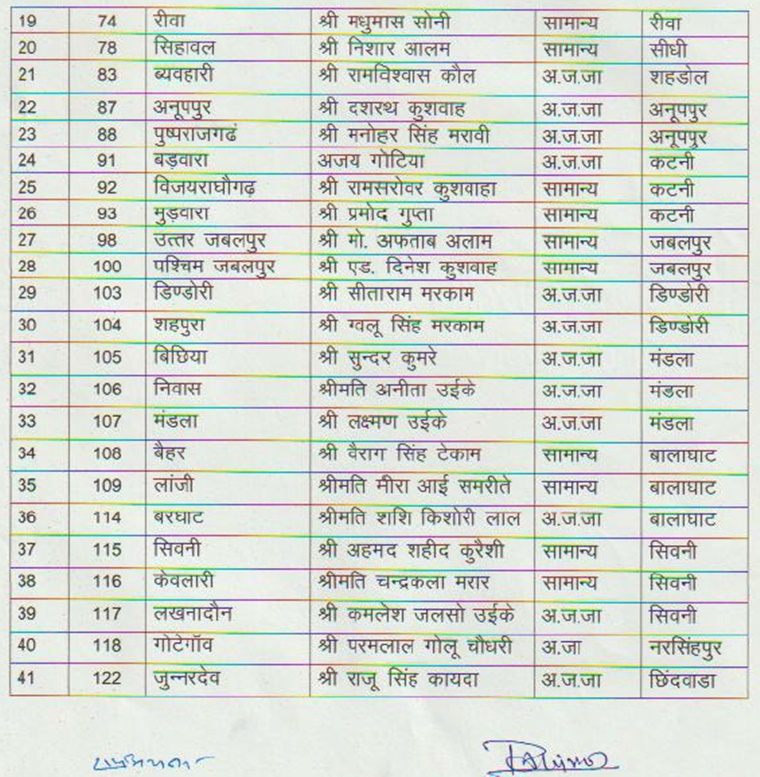 19 74 रीवा श्री मधुमास सोनी सामान्य रीवा
20 78 सिहावल श्री निशार आलम सामान्य सीधी
21 83 ब्यवहारी श्री रामविश्वास कौल अ.ज.जा शहडोल
22 87 अनूपपुर श्री दशरथ कुशवाह अ.ज.जा अनूपपुर
23 88 पुष्पराजगढं श्री मनोहर सिंह मरावी अ.ज.जा अनूपपुर
24 91 बड़वारा अजय गोटिया अ.ज.जा कटनी
25 92 विजयराघौगढ़ श्री रामसरोवर कुशवाहा सामान्य कटनी
26 93 मुड़वारा श्री प्रमोद गुप्ता सामान्य कटनी
27 98 उत्तर जबलपुर श्री मो. अफताब अलाम सामान्य जबलपुर
28 100 पश्चिम जबलपुर श्री एड. दिनेश कुशवाह सामान्य जबलपुर
29 103 डिण्डोरी श्री सीताराम मरकाम अ.ज.जा डिण्डोरी
30 104 शहपुरा श्री ग्वलू सिंह मरकाम अ.ज.जा डिण्डोरी
31 105 बिछिया श्री सुन्दर कुमरे अ.ज.जा मंडला
32 106 निवास श्रीमति अनीता उईके अ.ज.जा मंडला
33 107 मंडला श्री लक्ष्मण उईके अ.ज.जा मंडला
34 108 बैहर श्री वैराग सिंह टेकाम सामान्य बालाघाट
35 109 लांजी श्रीमति मीरा आई समरीते सामान्य बालाघाट
36 114 बरघाट श्रीमति शशि किशोरी लाल अ.ज.जा बालाघाट
37 115 सिवनी श्री अहमद शहीद कुरैशी सामान्य सिवनी
38 116 केवलारी श्रीमति चन्द्रकला मरार सामान्य सिवनी
39 117 लखनादौन श्री कमलेश जलसो उईके अ.ज.जा सिवनी
40 118 गोटेगॉव श्री परमलाल गोलू चौधरी अ.जा नरसिंहपुर
41 122 जुन्नरदेव श्री राजू सिंह कायदा अ.ज.जा छिंदवाडा